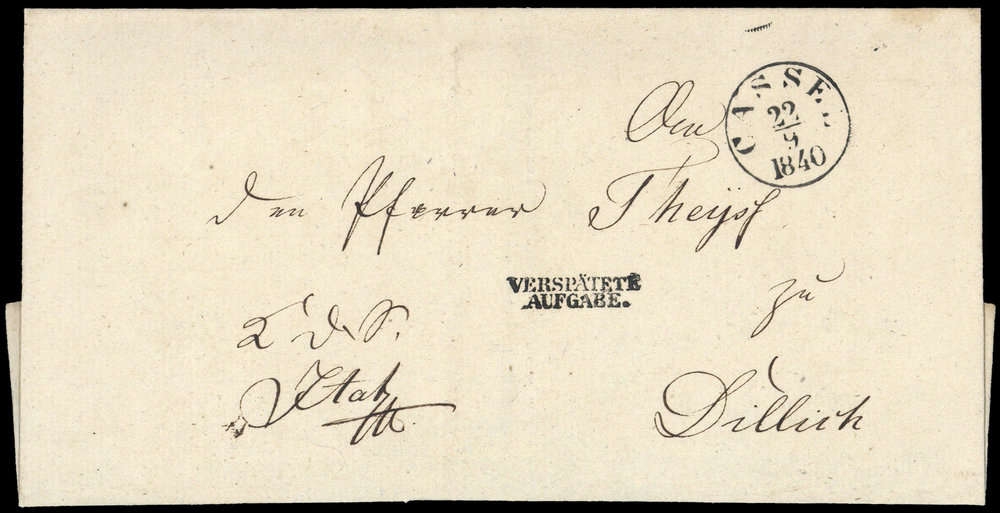 CASSEL
22
9
1840
An
den Pfarrer Theyß
VERSPÄTETE
AUFGABE.
zu
K. d. S.
Dillich